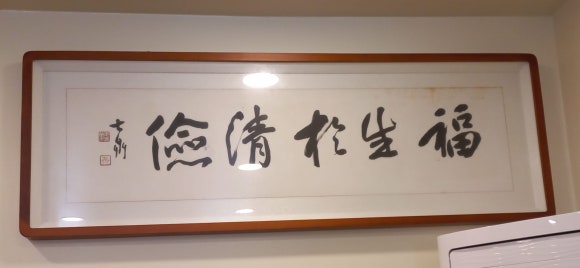 福生於清儉